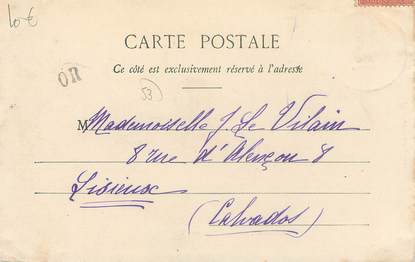 10 €
CARTE POSTALE
Ce côté est exclusivement réservé à l'adresse
OR
53
M Mademoiselle J Le Vilain
8 rue d'Alençon 8
Lisieux
(Calvados)